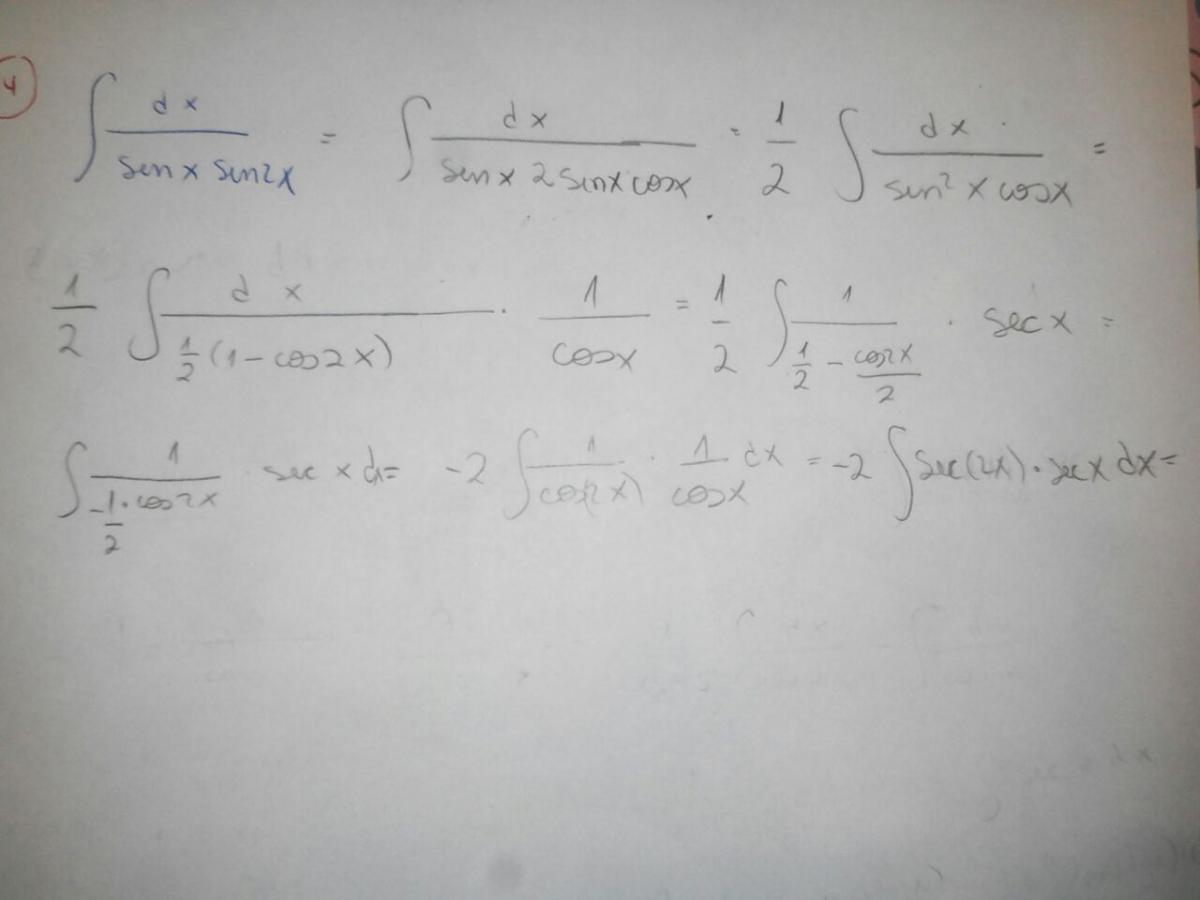 4
∫ dx / (sen x sen 2x) = ∫ dx / (sen x 2 sinx cosx) = 1/2 ∫ dx / (sin² x cosx) =
1/2 ∫ dx / (1/2 (1 - cos2x)) · 1/cosx = 1/2 ∫ 1 / (1/2 - cos2x/2) · sec x =
∫ 1 / (-1/2 · cos2x) · sec x dx = -2 ∫ 1/cos(2x) · 1/cosx dx = -2 ∫ sec(2x) · secx dx =